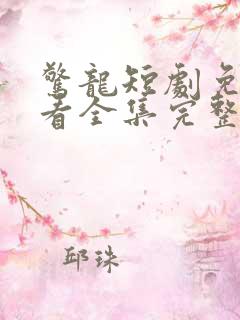 驚龍短劇免
看全集完整
邱珠